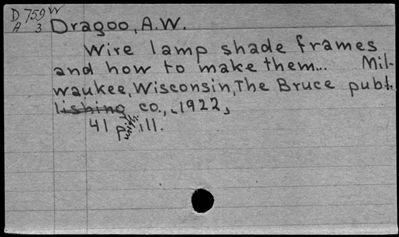 D 759w Dragoo, A.W.
A 3
Wire lamp shade frames
and how to make them... Mil-
waukee, Wisconsin, The Bruce publ.
lishing co., 1922,
41 p. ill.